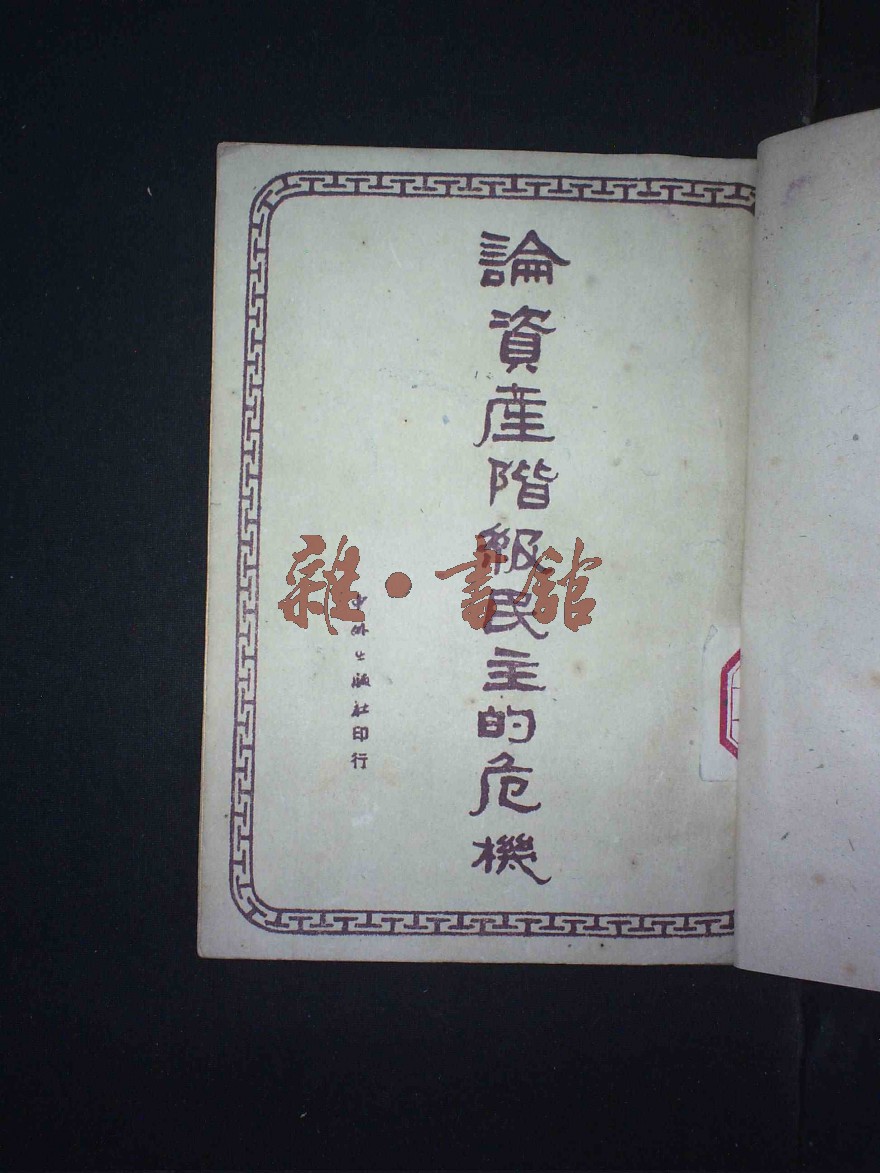 論資產階級民主的危機
中外出版社印行
雜·書館